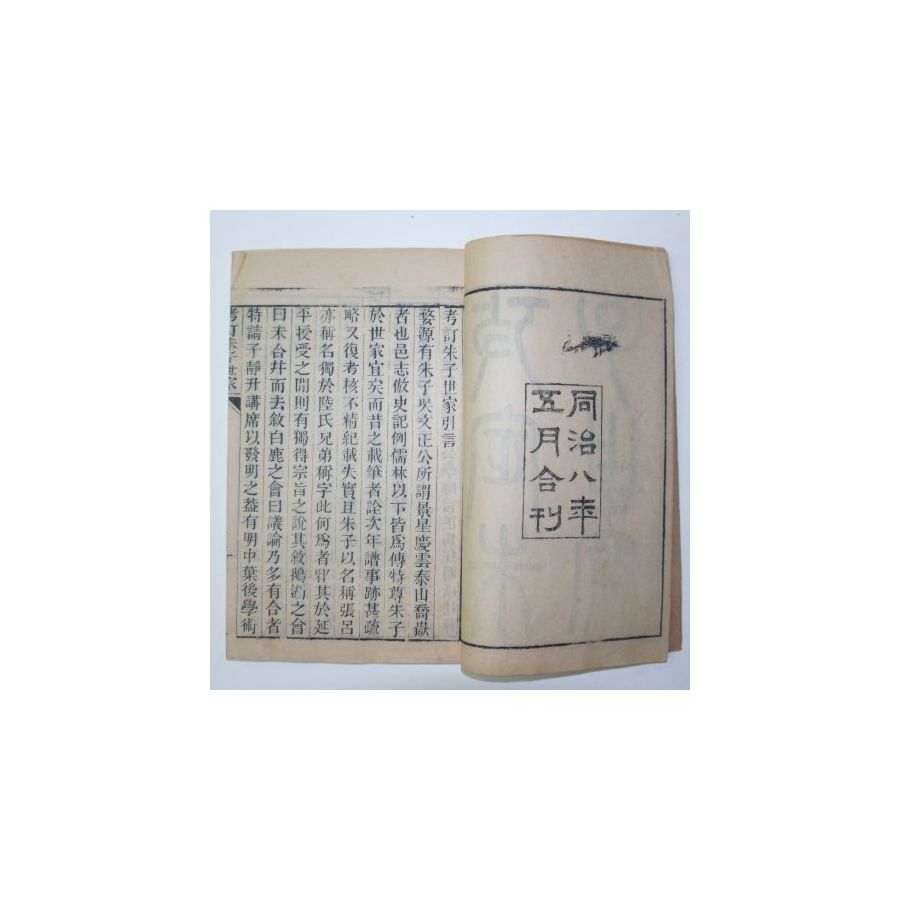 同治八年
五月合刊
考訂朱子世家引言
婺源有朱子吳文正公所謂景星慶雲泰山喬嶽
者也邑志倣史記例儒林以下皆爲傳特尊朱子
於世家宜矣而昔之載筆者詮次年譜事跡甚疏
略又復考核不精紀載失實且朱子以名稱張呂
亦稱名獨於陸氏兄弟稱字此何爲者邪其於延
平授受之閒則有獨得宗旨之說其敘鵝湖之會
曰未合幷而去敘白鹿之會曰議論乃多有合者
特請子靜升講席以發明之葢有明中葉後學術
考訂朱子世家